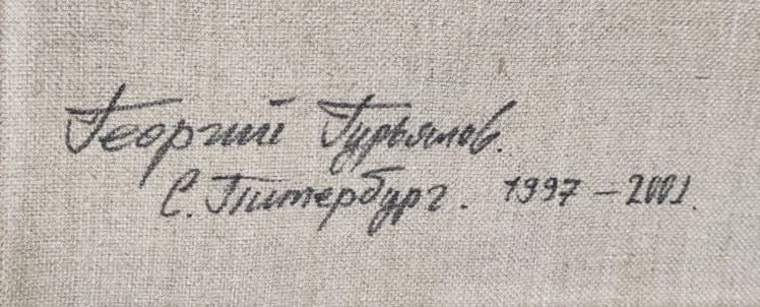 Георгий Гурьянов.
С. Питербург. 1997 – 2001.